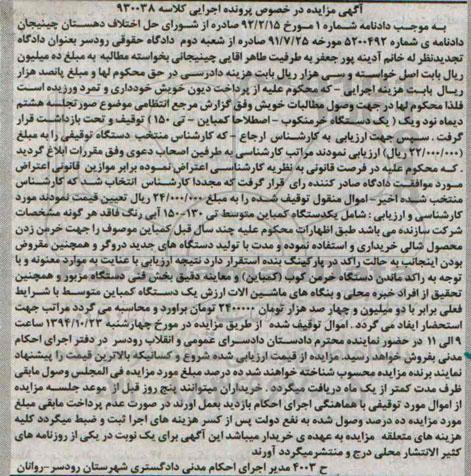 آگهی مزایده در خصوص پرونده اجرایی کلاسه ۹۳۰۰۳۸
به موجب دادنامه شماره ۱ مورخ ۹۲/۲/۱۵ صادره از شورای حل اختلاف دهستان چینیجان
دادنامه ی شماره ۵۲۰۰۴۹۲ مورخه ۹۱/۷/۲۵ صادره از شعبه دوم دادگاه حقوقی رودسر بعنوان دادگاه
تجدیدنظر له خانم آدینه پور جعفر به طرفیت طاهر آقایی چینیجانی بخواسته مطالبه به مبلغ ده میلیون
ریال بابت اصل خواسته و سی هزار ریال بابت هزینه دادرسی در حق محکوم لها و مبلغ پانصد هزار
ریال بابت هزینه اجرایی - که محکوم علیه از پرداخت دیون خویش خودداری و تمرد ورزیده است
فلذا محکوم لها در جهت وصول مطالبات خویش وفق گزارش مرجع انتظامی موضوع صورتجلسه هشتم
دیماه نود ویک ( یک دستگاه خرمنکوب - اصطلاحا کمباین - تی ۱۵۰) توقیف و تحت بازداشت قرار
گرفت . سپس جهت ارزیابی به کارشناس ارجاع - که کارشناس منتخب دستگاه توقیفی را به مبلغ
(۳۲/۰۰۰/۰۰۰ ریال) ارزیابی نمودند مراتب کارشناسی به طرفین اصحاب دعوی وفق مقررات ابلاغ گردید
. که محکوم علیه در فرصت قانونی به نظریه کارشناسی اعتراض نموده برابر موازین قانونی اعتراض
مورد موافقت دادگاه صادر کننده رای قرار گرفت که مجددا کارشناس انتخاب شد که کارشناس
منتخب شده اخیر - اموال منقول توقیف شده را به مبلغ ۲۴/۰۰۰/۰۰۰ ریال تعیین قیمت نمودند مورد
کارشناسی و ارزیابی : شامل یکدستگاه کمباین متوسط تی ۱۳۰-۱۵۰ آبی رنگ فاقد هر گونه مشخصات
شرکت سازنده می باشد طبق اظهارات محکوم علیه چند سال قبل کمباین موصوف را جهت خرمن زدن
محصول شالی خریداری و استفاده نموده و مدت با تولید دستگاه های جدید دروگر و همچنین مقروض
بودن اینجانب به حالت راکد در پارکینگ بنده استقرار دارد نتیجه ارزیابی با عنایت به موارد معنونه و با
توجه به راکد ماندن دستگاه خرمن کوب (کمباین) و معاینه دقیق بخش فنی دستگاه مزبور و همچنین
تحقیق از افراد خبره محلی و بنگاه های ماشین آلات ارزش یک دستگاه کمباین متوسط با شرایط
فعلی برابر با دو میلیون و چهار صد هزار تومان ۲۴۰۰۰۰۰ تومان برآورد و محاسبه می گردد مراتب جهت
استحضار ایفاد می گردد . اموال توقیف شده از طریق مزایده در مورخ چهارشنبه ۱۳۹۴/۱۰/۲۳ ساعت
۹ الی ۱۱ در حضور نماینده محترم دادستان دادسرای عمومی و انقلاب رودسر در دفتر اجرای احکام
مدنی بفروش خواهد رسید. مزایده از قیمت ارزیابی شده شروع و کسانیکه بالاترین قیمت را پیشنهاد
نمایند برنده مزایده محسوب شناخته خواهند شد ده درصد مبلغ مورد مزایده فی المجلس وصول مابقی
ظرف مدت کمتر از یک ماه دریافت میگردد . خریداران میتوانند پنج روز قبل از موعد جلسه مزایده
از اموال مورد توقیفی با هماهنگی اجرای احکام بازدید بعمل آورند در صورت عدم پرداخت مابقی مبلغ
مورد مزایده ده درصد وصول شده به نفع دولت پس از کسر هزینه های اجرا ثبت و ضبط میگردد کلیه
هزینه های متعلقه مزایده به عهده ی خریدار میباشد این آگهی برای یک نوبت در یکی از روزنامه های
کثیر الانتشار محلی درج و منتشر میگردد آورند
ح ۴۰۰۳ مدیر اجرای احکام مدنی دادگستری شهرستان رودسر - روانان